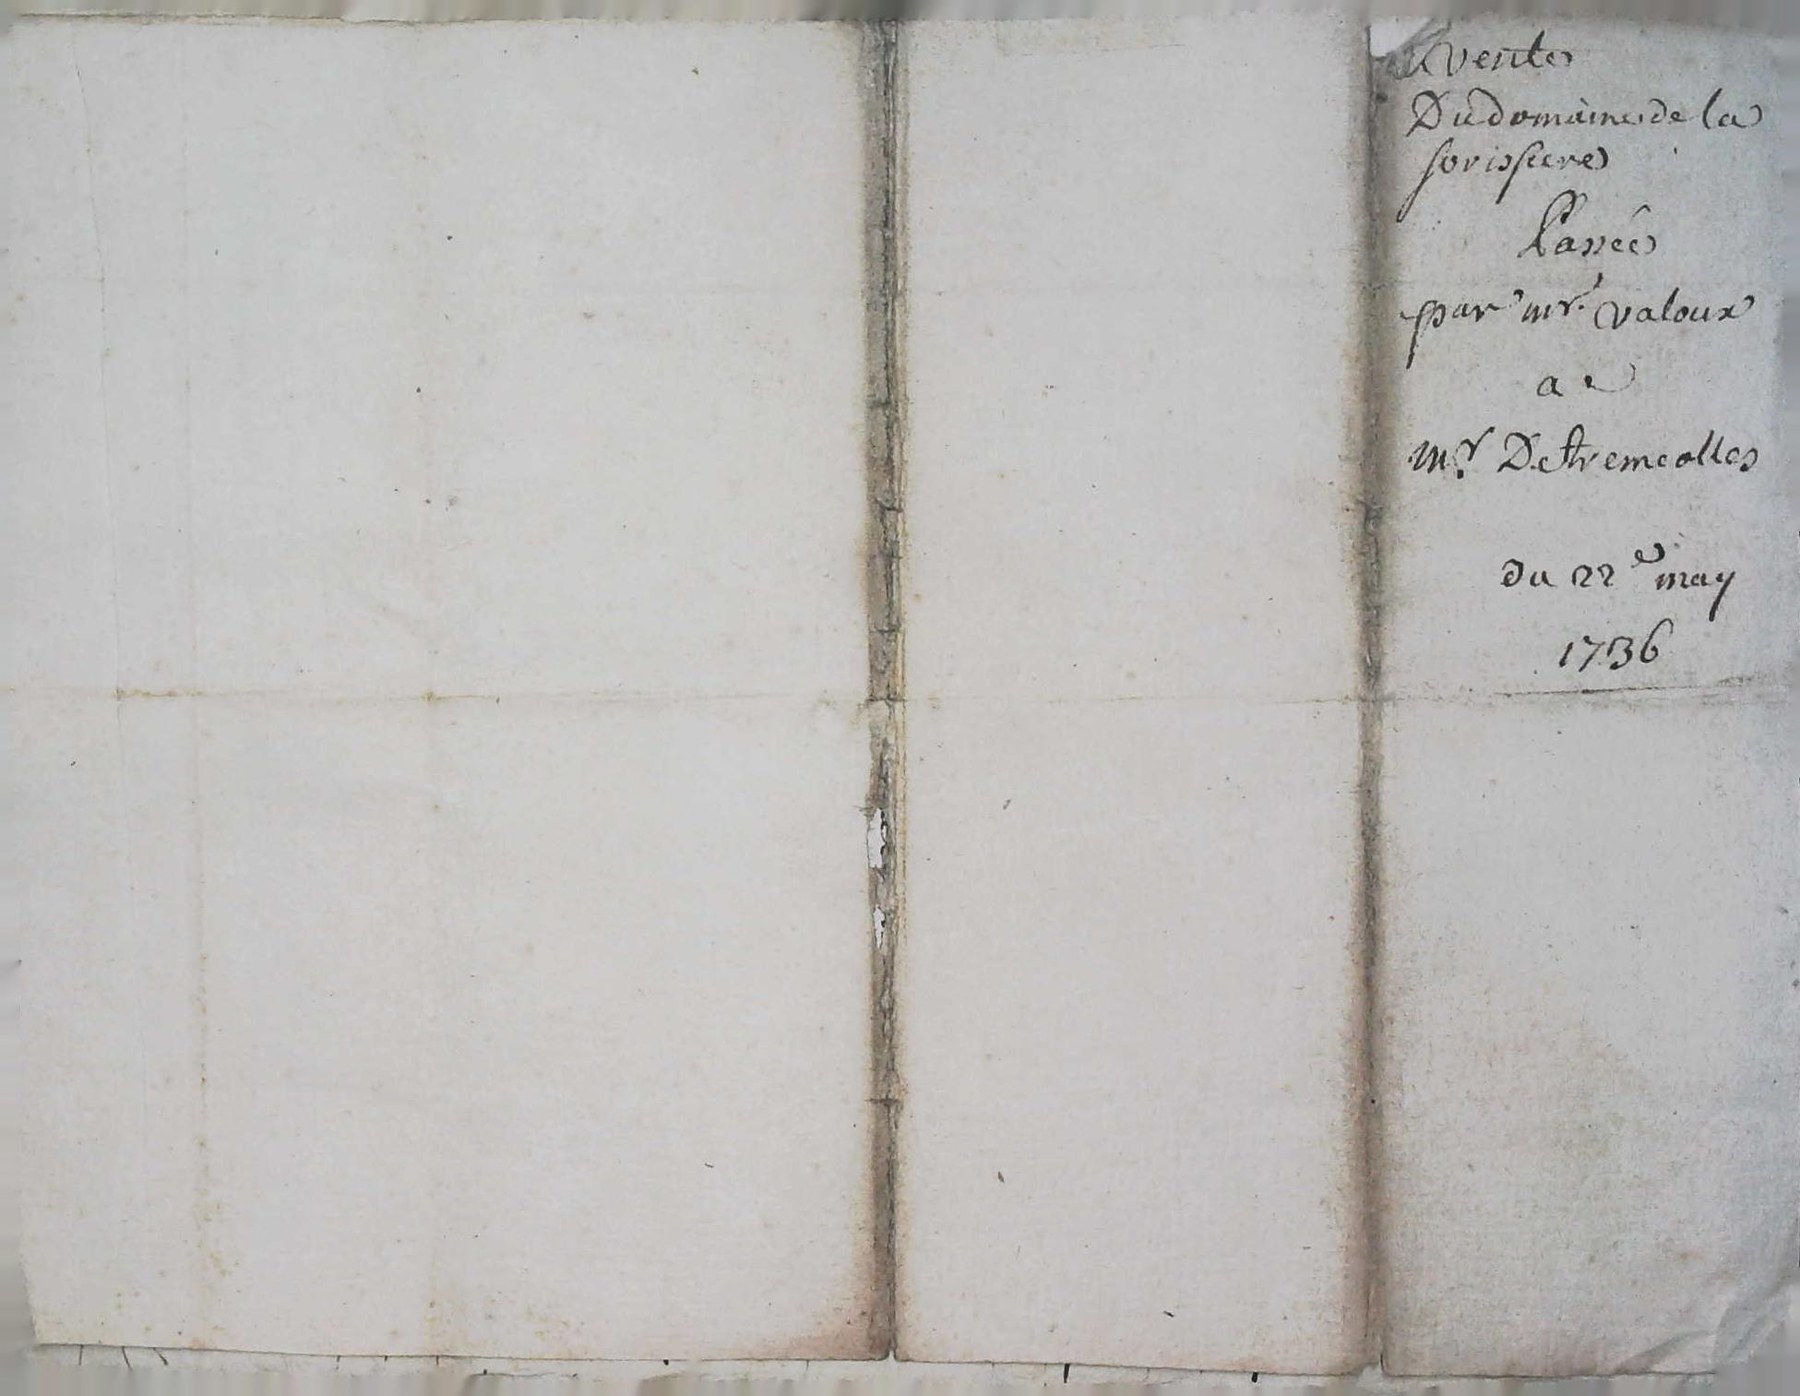 vente
Du domaine de la
sorissiere
Passée
par mr. valoux
a
mr. Detremeolles
du 22e may
1736